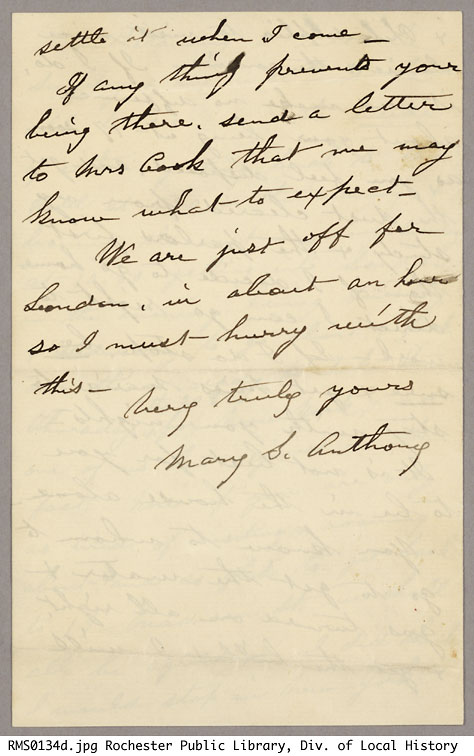 settle it when I come –
If any thing prevents your
being there, send a letter
to Mrs Cook that we may
know what to expect –
We are just off for
London, in about an hour
so I must hurry with
this –
Very truly yours
Mary S. Anthony
RMS0134d.jpg Rochester Public Library, Div. of Local History